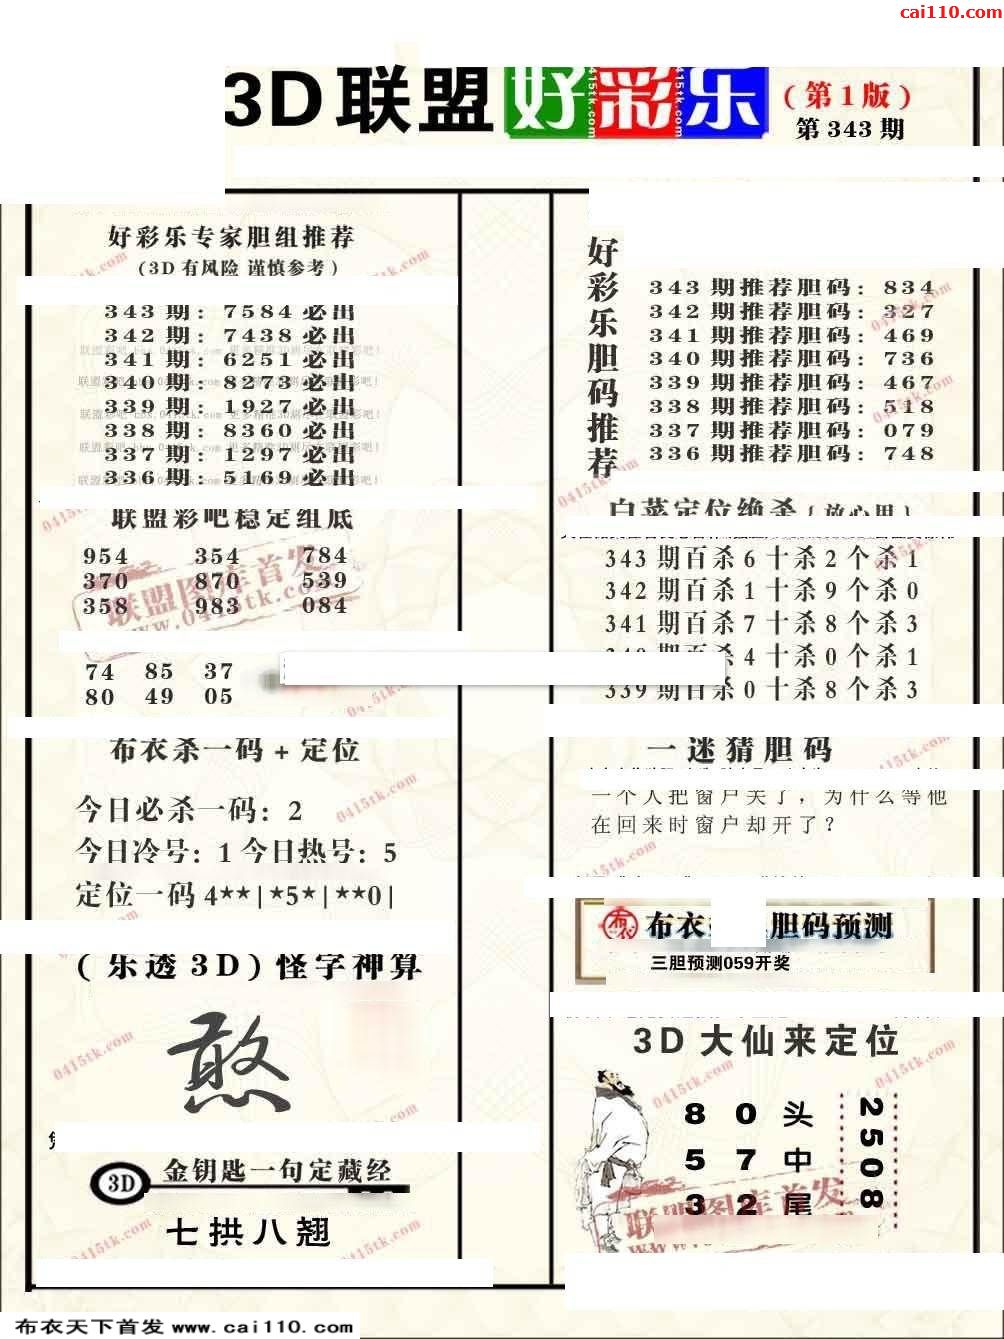 cai110.com
3D联盟好彩乐
(第1版)
第343期
好彩乐专家胆组推荐
(3D有风险 谨慎参考)
343期: 7584必出
342期: 7438必出
341期: 6251必出
340期: 8273必出
339期: 1927必出
338期: 8360必出
337期: 1297必出
336期: 5169必出
联盟彩吧稳定组底
954 354 784
370 870 539
358 983 084
74 85 37
80 49 05
布衣杀一码+定位
今日必杀一码: 2
今日冷号: 1 今日热号: 5
定位一码 4**|*5*|**0|
(乐透3D)怪字神算
憨
3D 金钥匙一句定藏经
七拱八翘
好彩乐胆码推荐
343期推荐胆码: 834
342期推荐胆码: 327
341期推荐胆码: 469
340期推荐胆码: 736
339期推荐胆码: 467
338期推荐胆码: 518
337期推荐胆码: 079
336期推荐胆码: 748
白菜定位绝杀{放心用}
343期百杀6十杀2个杀1
342期百杀1十杀9个杀0
341期百杀7十杀8个杀3
340期百杀4十杀0个杀1
339期百杀0十杀8个杀3
一迷猜胆码
一个人把窗户关了,为什么等他
在回来时窗户却开了?
布衣 胆码预测
三胆预测059开奖
3D大仙来定位
8 0 头
5 7 中
3 2 尾
2508
联盟图库首发
www.0415tk.com
布衣天下首发 www.cai110.com